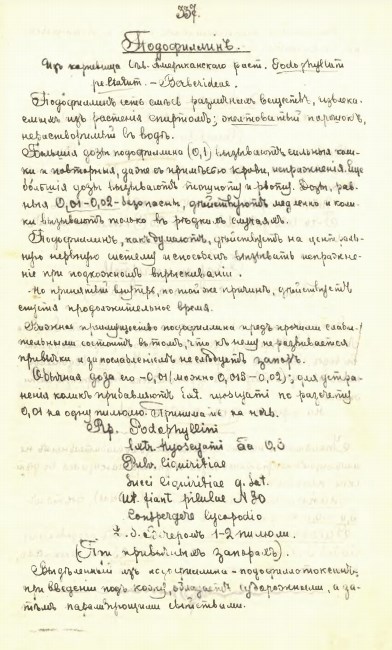 337.
Подофиллинъ.
Изъ корневища Сѣв. Американскаго раст. Podophyllum
peltatum. – Berberideae.
Подофиллинъ есть смѣсь различныхъ веществъ, извлека-
емыхъ изъ растенія спиртомъ; желтоватый порошокъ,
нерастворимый въ водѣ.
Большія дозы подофиллина (0,1) вызываютъ сильныя коли-
ки и повторныя, даже съ примѣсью крови, испражненія. Еще
большія дозы вызываютъ тошноту и рвоту. Дозы, рав-
ныя 0,01-0,02 – безопасны, дѣйствуютъ медленно и коли-
ки вызываютъ только въ рѣдкихъ случаяхъ.
Подофиллинъ, какъ думаютъ, дѣйствуетъ на централь-
ную нервную систему и способенъ вызывать испражне-
ніе при подкожномъ впрыскиваніи.
Но принятый внутрь, по той же причинѣ, дѣйствуетъ
спустя продолжительное время.
Важное преимущество подофиллина предъ прочими слаби-
тельными состоитъ въ томъ, что къ нему не развивается
привычки и за послабленіемъ не слѣдуетъ запоръ.
Обычная доза его – 0,01 (можно 0,015 – 0,02); для устра-
ненія коликъ прибавляютъ Extr. hyoscyami по разсчету
0,01 на одну пилюлю. Принимаютъ на ночь.
Rp. Podophyllini
Extr. Hyoscyami āā 0,3
Pulv. Liquiritiae
Succi Liquiritiae q. sat.
Ut fiant pilulae N 30
Conspergere Lycopodio
вечеромъ 1-2 пилюли.
(При привычныхъ запорахъ).
Выдѣленный изъ подофиллина – подофиллотоксинъ
при введеніи подъ кожу, обладаетъ судорожными, а за-
тѣмъ парализующими свойствами.